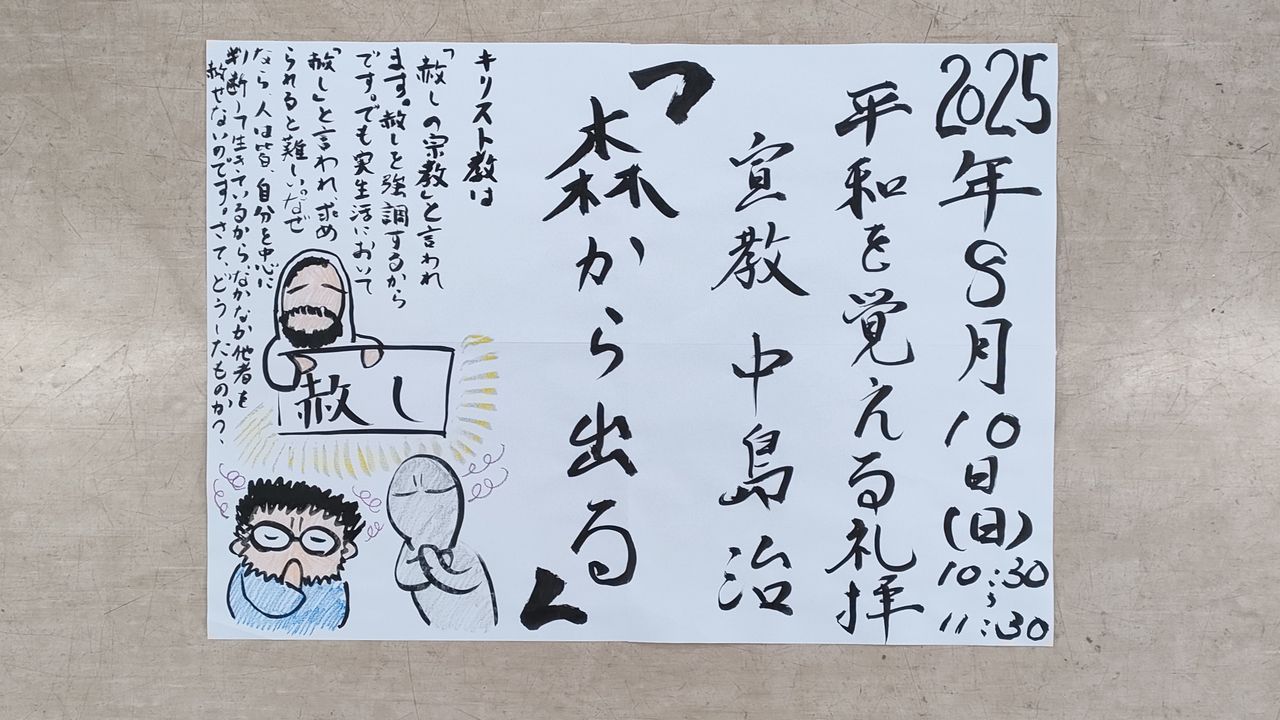 2025年8月10日(日)
10:30
〜
11:30
平和を覚える礼拝
宣教 中島治
「森から出る」
キリスト教は
「赦しの宗教」と言われ
ます。赦しを強調するから
です。でも実生活において
「赦し」と言われ、求め
られると難しい。なぜ
なら、人は皆、自分を中心に
判断して生きているから、なかなか他者を
赦せないのです。さて、どうしたものかつ、
赦し